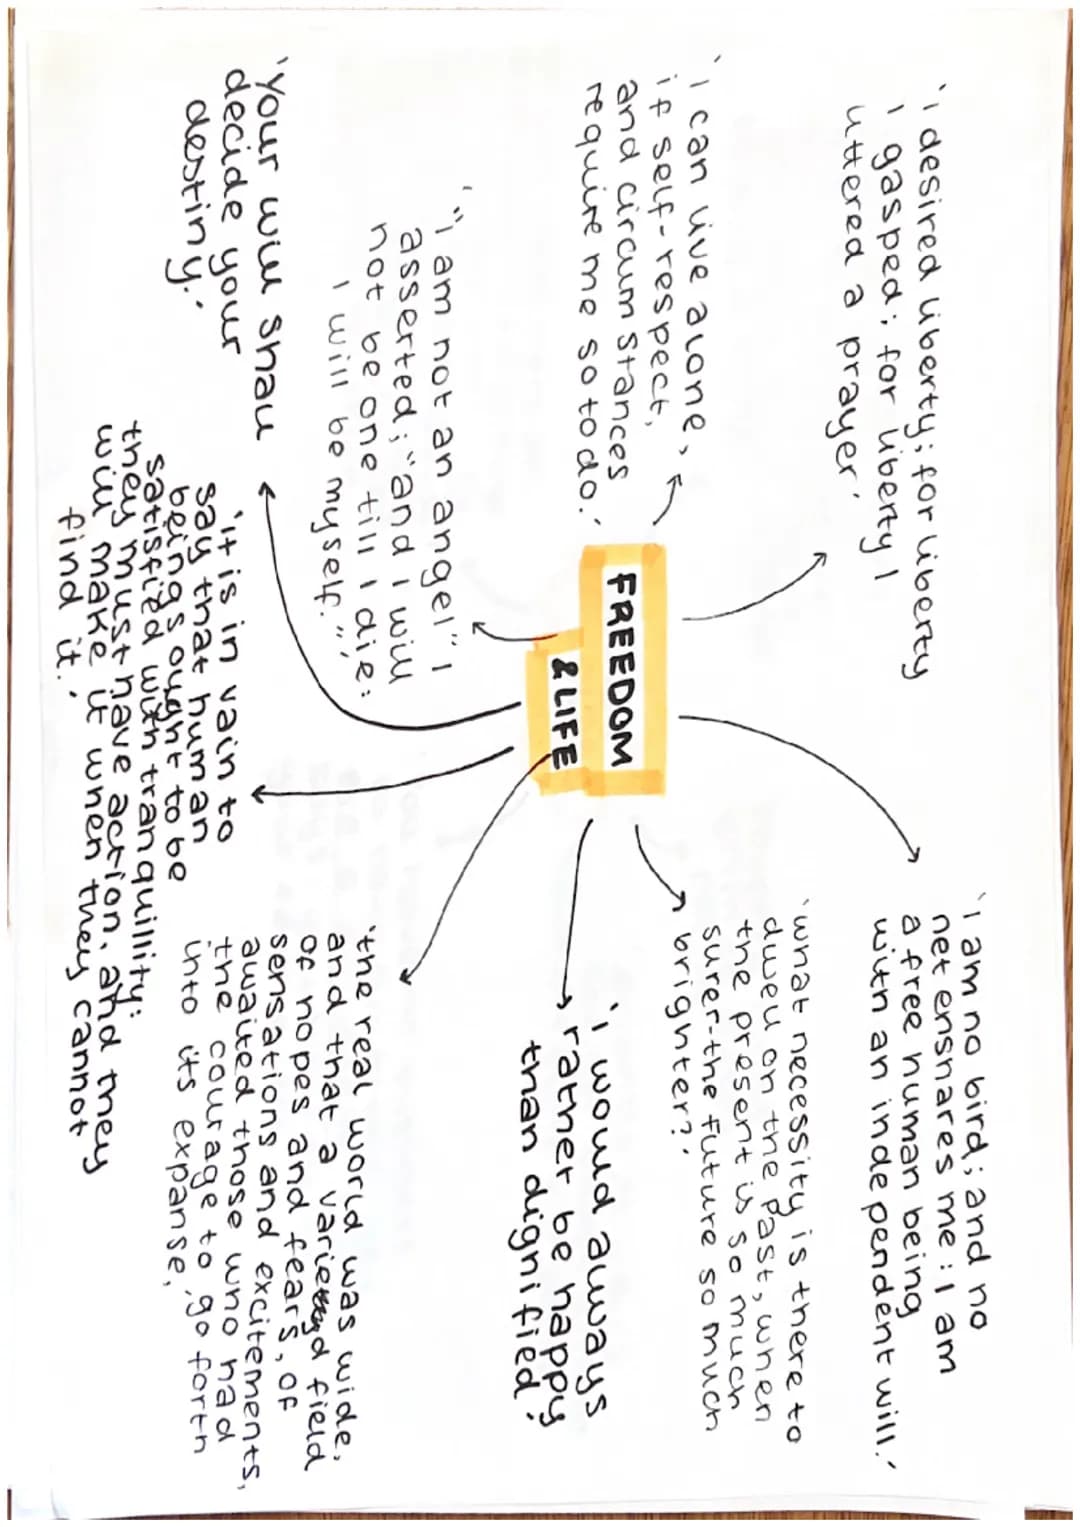 'I desired liberty; for liberty
I gasped; for liberty I
uttered a prayer'
'I can live alone,
if self-respect,
and circumstances
require me so to do.'
'"I am not an angel" I
asserted; "and I will
not be one till I die:
I will be myself."'
'Your will shall
decide your
destiny.'
FREEDOM
& LIFE
'I am no bird; and no
net ensnares me: I am
a free human being
with an independent will.'
'what necessity is there to
dwell on the past, when
the present is so much
surer-the future so much
brighter?'
'I would always
rather be happy
than dignified'
'the real world was wide,
and that a varied field
of hopes and fears, of
sensations and excitements,
awaited those who had
the courage to go forth
into its expanse,
'It is in vain to
say that human
beings ought to be
satisfied with tranquillity:
they must have action, and they
will make it when they cannot
find it.'